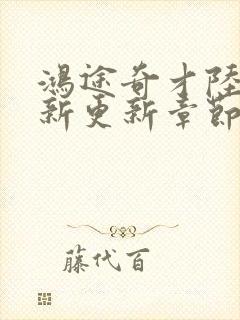 鴻途奇才陸
新更新章節
藤代百